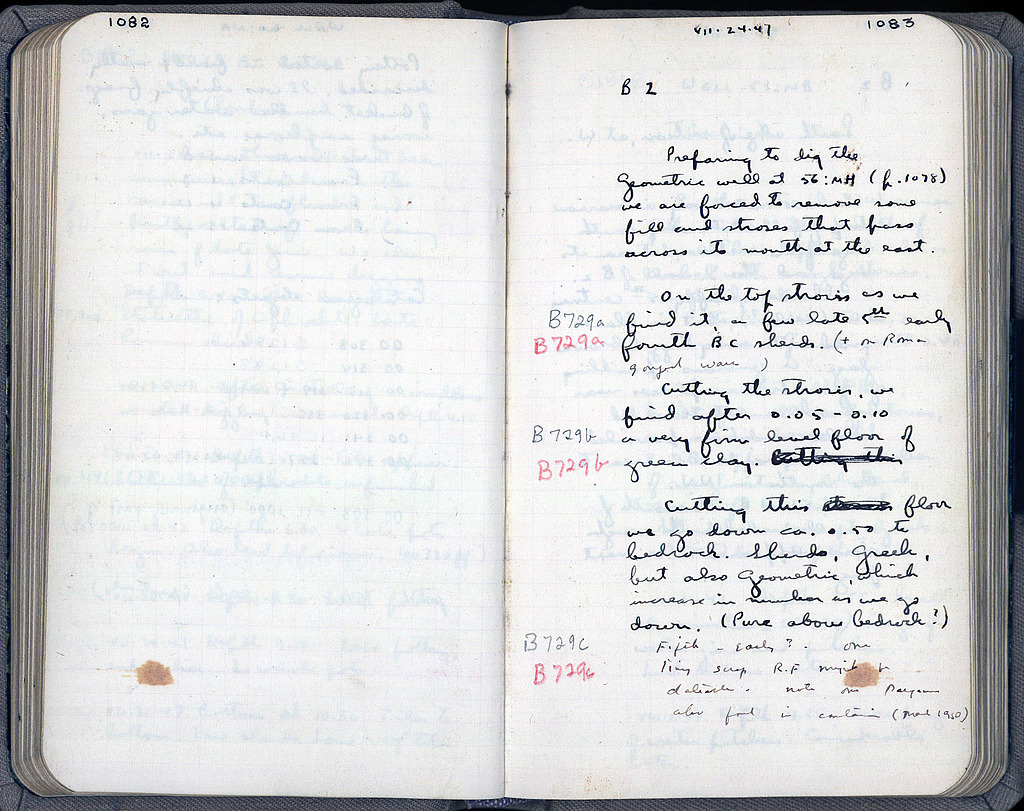 1082
VII·24·47
1083
B 2
Preparing to dig the
Geometric well at 56:ΜΗ (p. 1078)
we are forced to remove some
fill and stroses that pass
across its mouth at the east.
On the top strosis as we
B729a find it, a few late 5th early
B729a fourth BC sherds. (+ on Roman
gouged ware)
Cutting the strosis, we
find after 0.05 - 0.10
B729b a very firm level floor of
B729b green clay. Cutting this
Cutting this floor
we go down ca. 0.50 to
bedrock. Sherds, Greek,
but also Geometric, which
increase in number as we go
down. (Pure above bedrock?)
B729c Fifth - early? . one
B729c tiny scrap R.F. might be
note one
also in (1950)